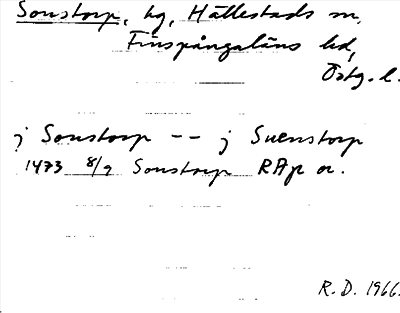 Sonstorp, hg, Hällestads sn,
Finspångaläns hd,
Östg. l.
j Sonstorp -- j Suenstorp
1473 8/9 Sonstorp RAp or.
R.D. 1966.